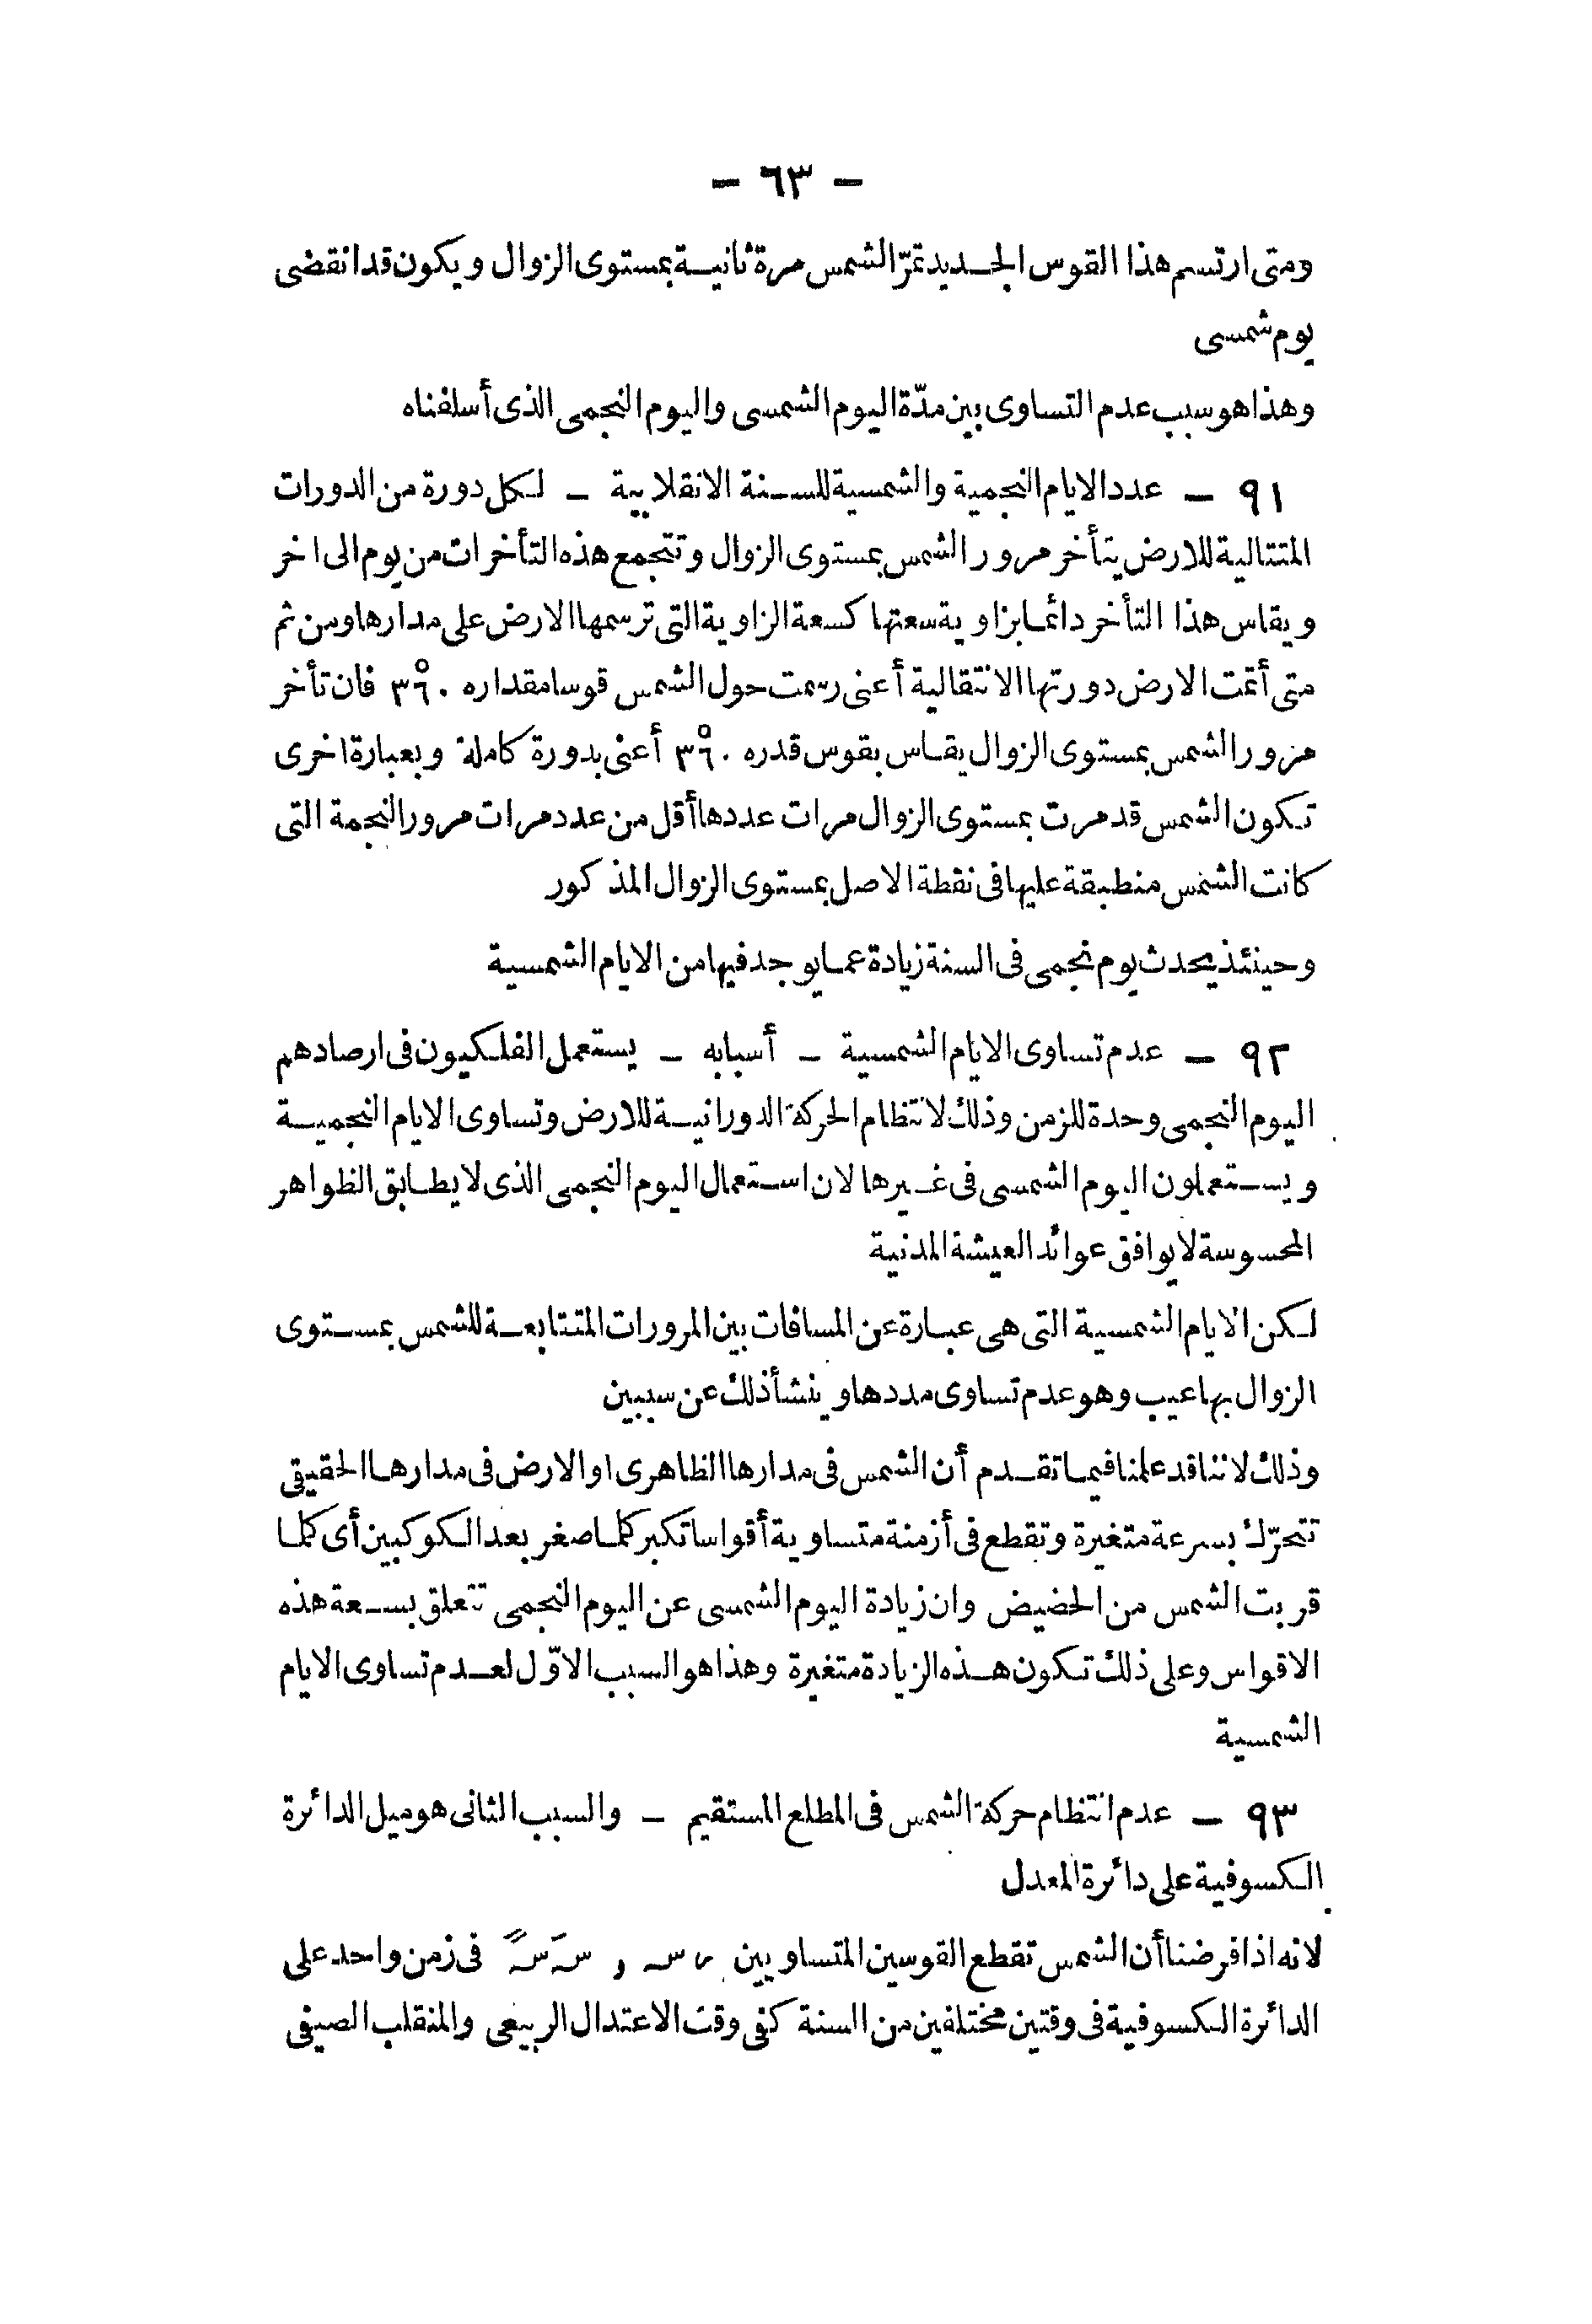 - ٦٣ -
ومتى ارتسم هذا القوس الجديد تمرّ الشمس مرة ثانية بمستوى الزوال ويكون قد انقضى
يوم شمسى
وهذا هو سبب عدم التساوى بين مدّة اليوم الشمسى واليوم النجمى الذى أسلفناه
٩١ - عدد الايام النجمية والشمسية للسنة الانقلابية - لكل دورة من الدورات
المتتالية للارض يتأخر مرور الشمس بمستوى الزوال وتتجمع هذه التأخرات من يوم الى اخر
ويقاس هذا التأخر دائما بزاوية سعتها كسعة الزاوية التى ترسمها الارض على مدارها ومن ثم
متى أتمت الارض دورتها الانتقالية أعنى رسمت حول الشمس قوسا مقداره ٣٦٠° فان تأخر
مرور الشمس بمستوى الزوال يقاس بقوس قدره ٣٦٠° أعنى بدورة كاملة وبعبارة اخرى
تكون الشمس قد مرت بمستوى الزوال مرات عددها أقل من عدد مرات مرور النجمة التى
كانت الشمس منطبقة عليها فى نقطة الاصل بمستوى الزوال المذكور
وحينئذ يحدث يوم نجمى فى السنة زيادة عما يوجد فيها من الايام الشمسية
٩٢ - عدم تساوى الايام الشمسية - أسبابه - يستعمل الفلكيون فى ارصادهم
اليوم النجمى وحدة للزمن وذلك لانتظام الحركة الدورانية للارض وتساوى الايام النجمية
ويستعملون اليوم الشمسى فى غيرها لان استعمال اليوم النجمى الذى لا يطابق الظواهر
المحسوسة لا يوافق عوائد العيشة المدنية
لكن الايام الشمسية التى هى عبارة عن المسافات بين المرورات المتتابعة للشمس بمستوى
الزوال بها عيب وهو عدم تساوى مددها وينشأ ذلك عن سببين
وذلك لاننا قد علمنا فيما تقدم أن الشمس فى مدارها الظاهرى او الارض فى مدارها الحقيقى
تتحرّك بسرعة متغيرة وتقطع فى أزمنة متساوية أقواسا تكبر كلما صغر بعد الكوكبين أى كلما
قربت الشمس من الحضيض وان زيادة اليوم الشمسى عن اليوم النجمى تتعلق بسعة هذه
الاقواس وعلى ذلك تكون هذه الزيادة متغيرة وهذا هو السبب الاوّل لعدم تساوى الايام
الشمسية
٩٣ - عدم انتظام حركة الشمس فى المطلع المستقيم - والسبب الثانى هو ميل الدائرة
الكسوفية على دائرة المعدل
لانه اذا فرضنا أن الشمس تقطع القوسين المتساويين س و سَ سً فى زمن واحد على
الدائرة الكسوفية فى وقتين مختلفين من السنة كفى وقت الاعتدال الربيعى والمنقلب الصيفى